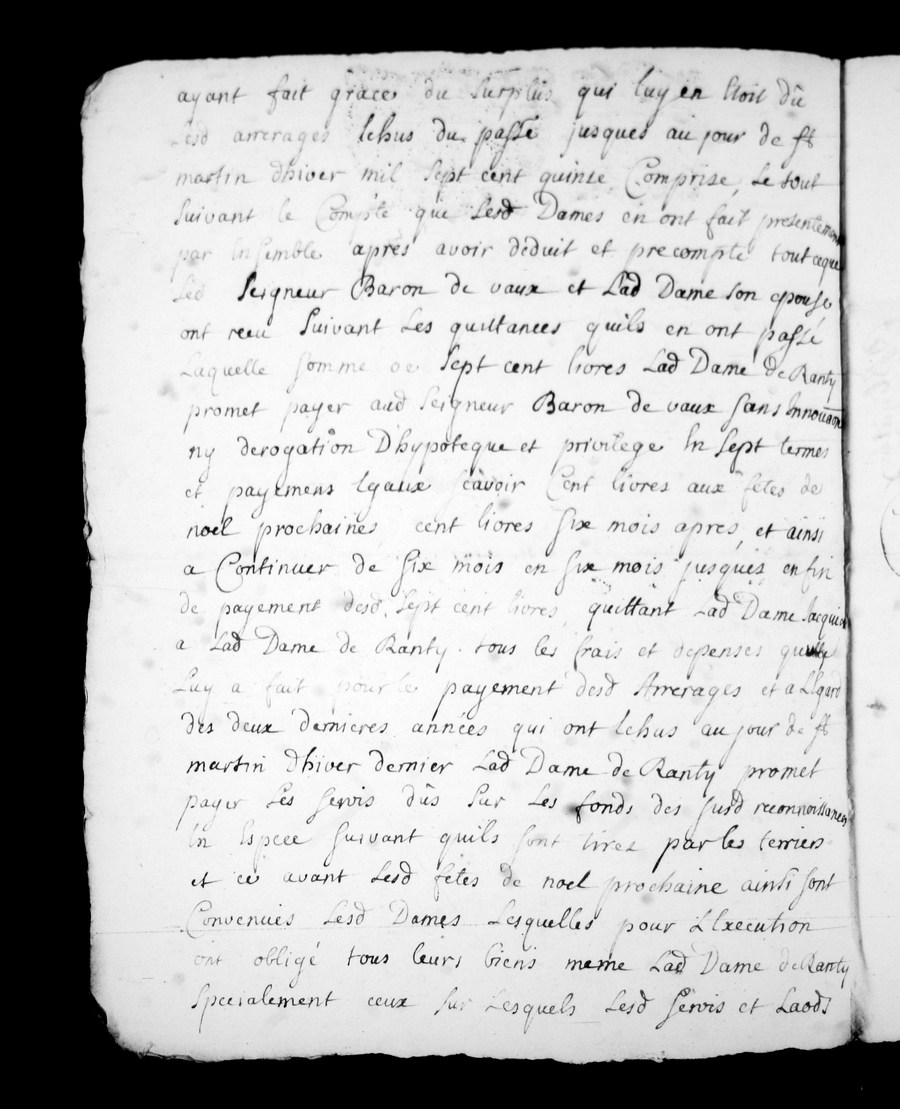 ayant fait grace du Surplus qui luy en Etoit dû
Lesd arrerages Echus du passé jusques au jour de st
martin dhiver mil Sept cent quinze Comprise, Le tout
Suivant le Compte que Lesd Dames en ont fait presentement
par Ensemble aprés avoir deduit et precompté tout ceque
Led Seigneur Baron de vaux et Lad Dame Son epouse
ont reçu Suivant Les quittances quils en ont passé
Laquelle Somme de Sept cent livres Lad Dame de Ranty
promet payer aud Seigneur Baron de vaux Sans Innovaon
ny derogation D'hypoteque et privilege En Sept termes
et payemens Egaux Scavoir Cent livres aux fétes de
noel prochaines cent livres Six mois apres, et ainsi
a Continuer de Six mois en Six mois jusques en fin
de payement desd. Sept cent livres, quittant Lad Dame
a Lad Dame de Ranty. tous les frais et depenses
Luy a fait pour le payement desd Arrerages et a L'Egard
des deux dernieres années qui ont Echus au jour de st
martin dhiver dernier Lad Dame de Ranty promet
payer Les Servis dûs Sur Les fonds des susd reconnoissances
En Espece Suivant quils sont tirez par les terriers
et ce avant Lesd fétes de noel prochaine ainsi sont
Convenues Lesd Dames Lesquelles pour L'Execution
ont obligé tous leurs biens meme Lad Dame de Ranty
Specialement ceux sur Lesquels Lesd Servis et Laods